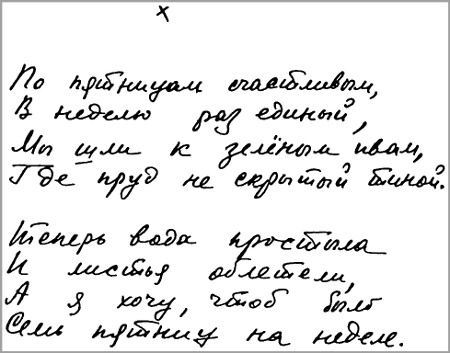 х
По пятницам счастливым,
В неделю раз единый,
Мы шли к зелёным ивам,
Где пруд не скрытый тиной.
И теперь вода простыла
И листья облетели,
А я хочу, чтоб было
Семь пятниц на неделе.